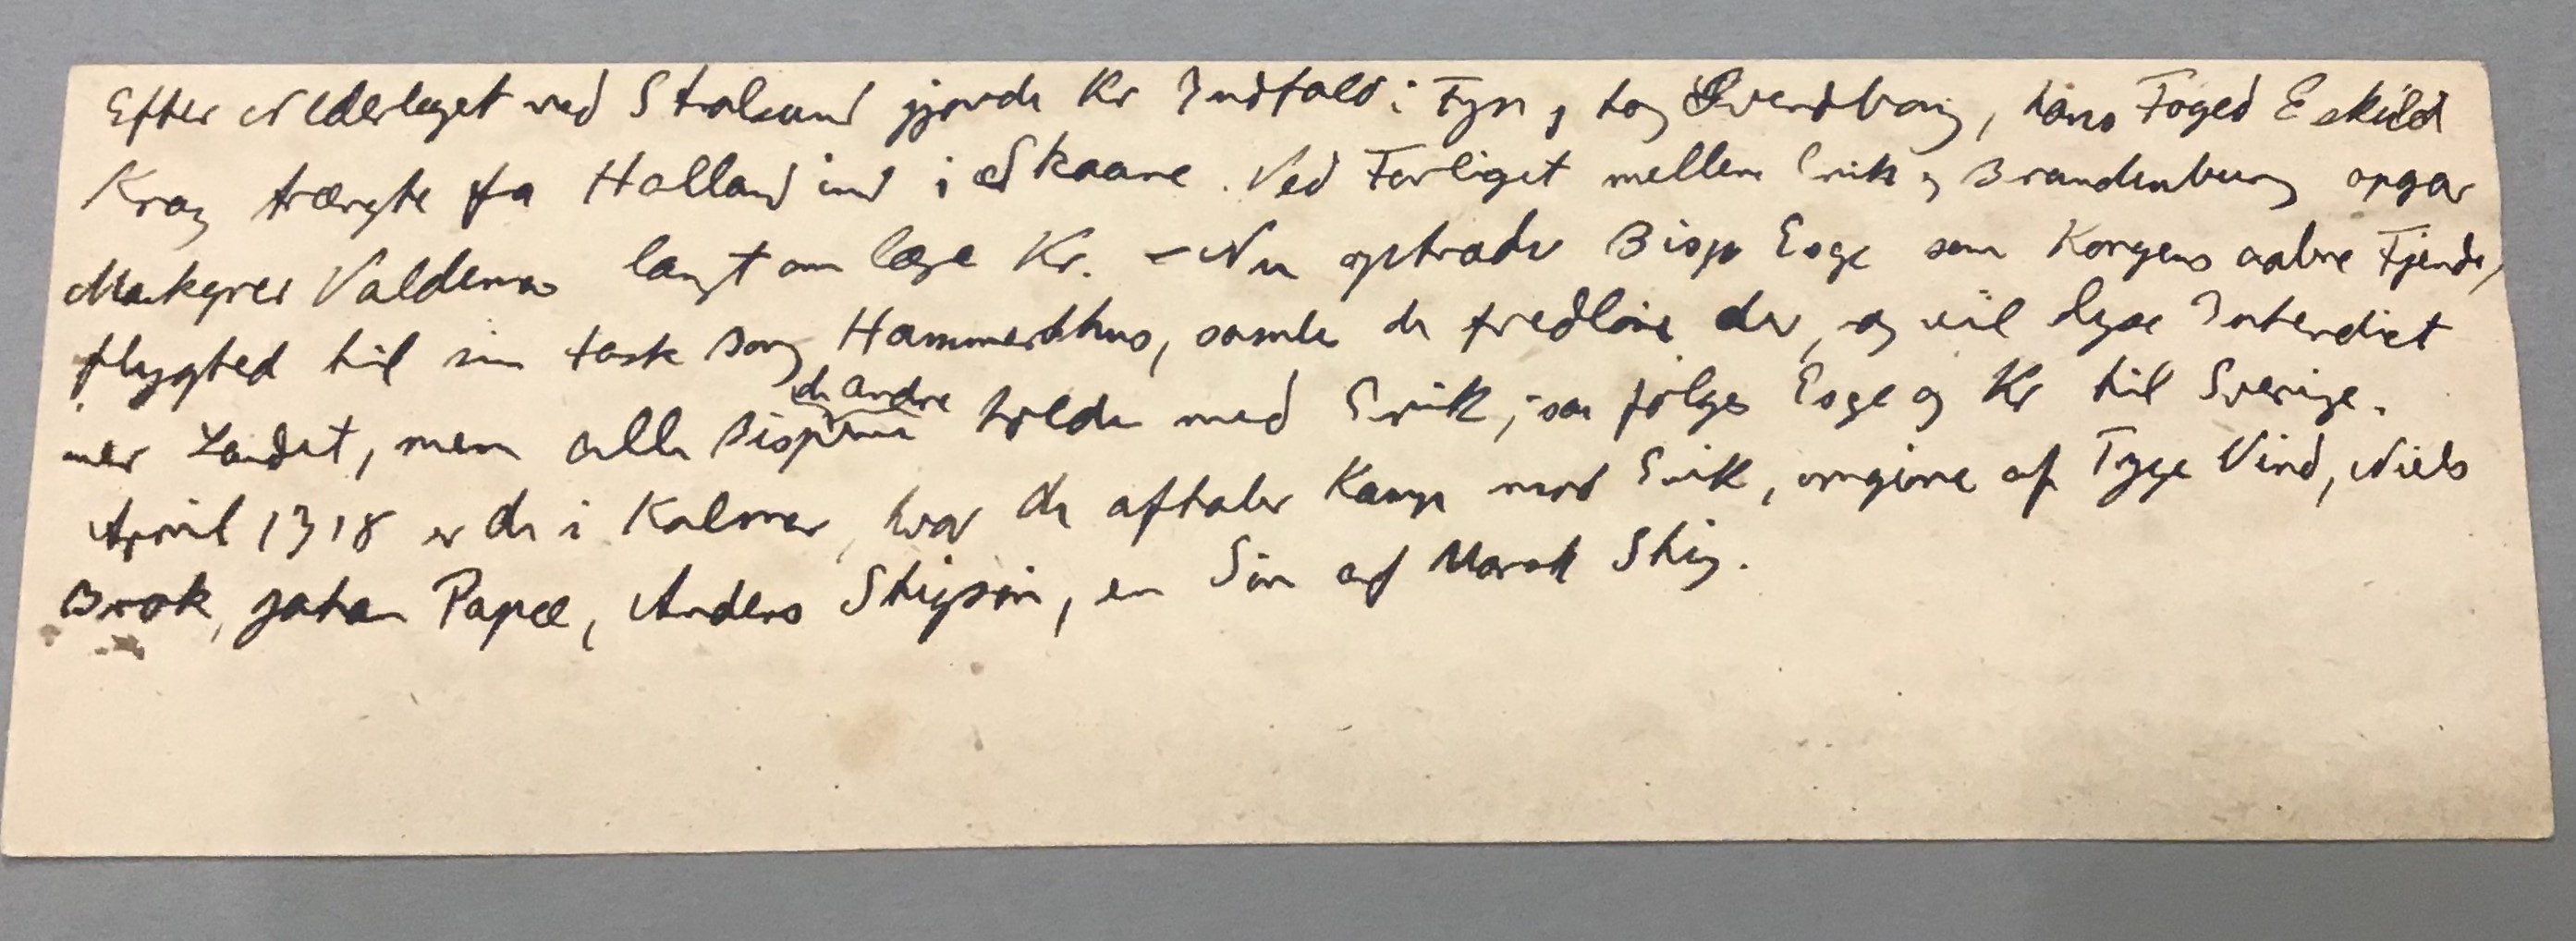 Efter Nederlaget ved Stralsund gjorde Kr Indfald i Fyn og tog Svendborg, hans Foged Eskild
Krag trængte fra Halland ind i Skaane. Ved Forliget mellem Erik og Brandenburg opgav
Markgrev Valdemar langt om læge Kr. - Nu optraadte Bisp Esge som Kongens aabne Fjende,
flygted til sin faste Borg Hammershus, samler de fredløse der, og vil lyse Interdict
over Landet, men alle de andre Bisperne holder med Erik, saa følges Esge og Kr til Sverige.
April 1318 er de i Kalmar, hvor de aftaler Kamp mod Erik, omgivne af Tyge Vind, Niels
Brok, Johan Papæ, Anders Stigsøn, en Søn af Marsk Stig.